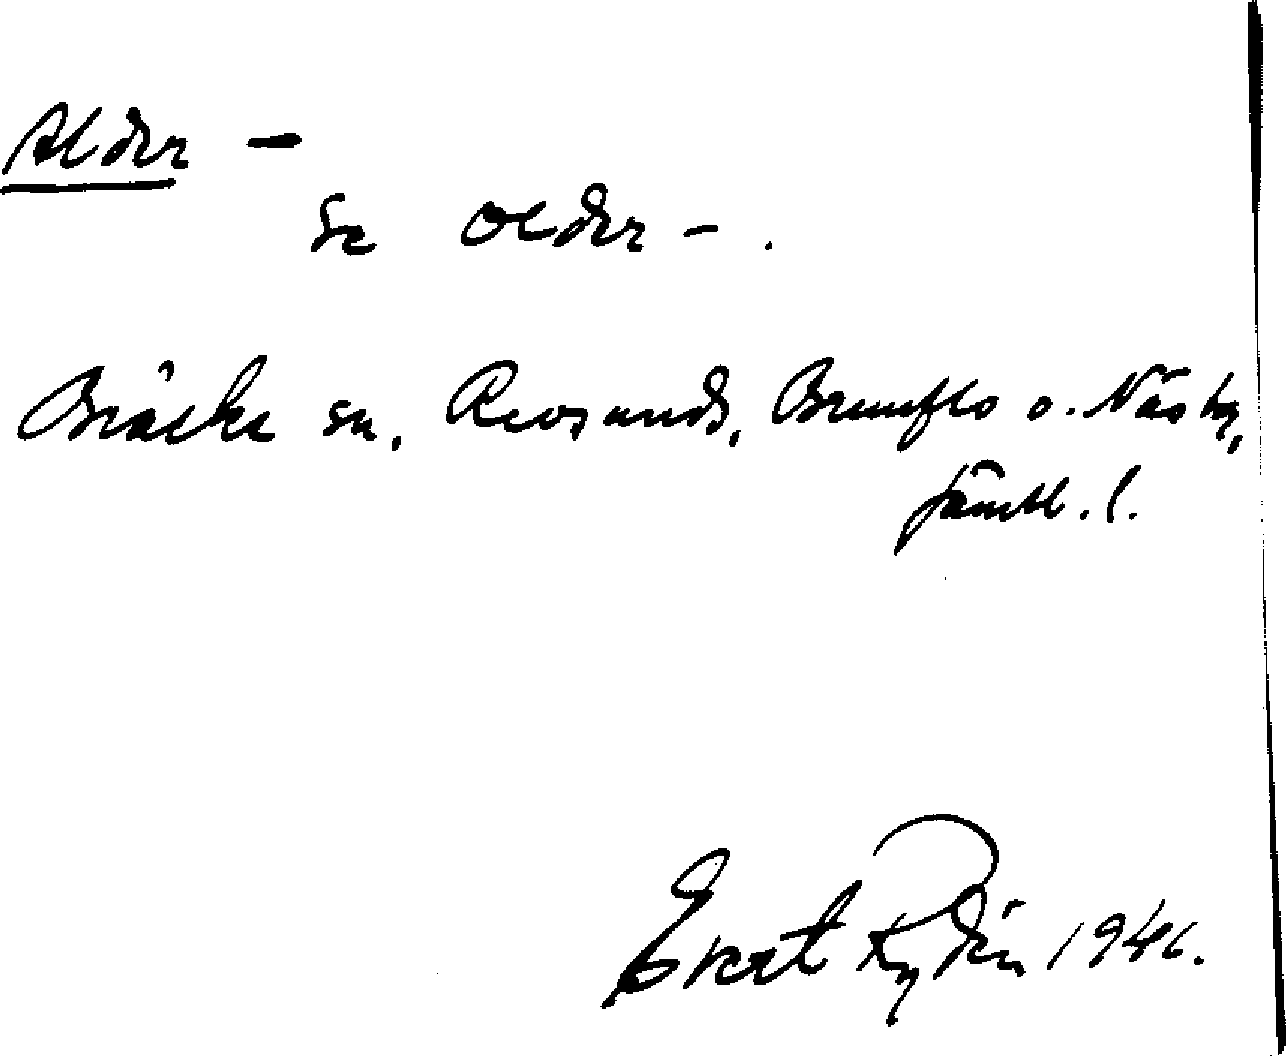 Alder -
Se Older - .
Bräcke sn, Revsunds, Brunflo o. Näs tg,
Jämtl. l.
Evert Rydén 1946.